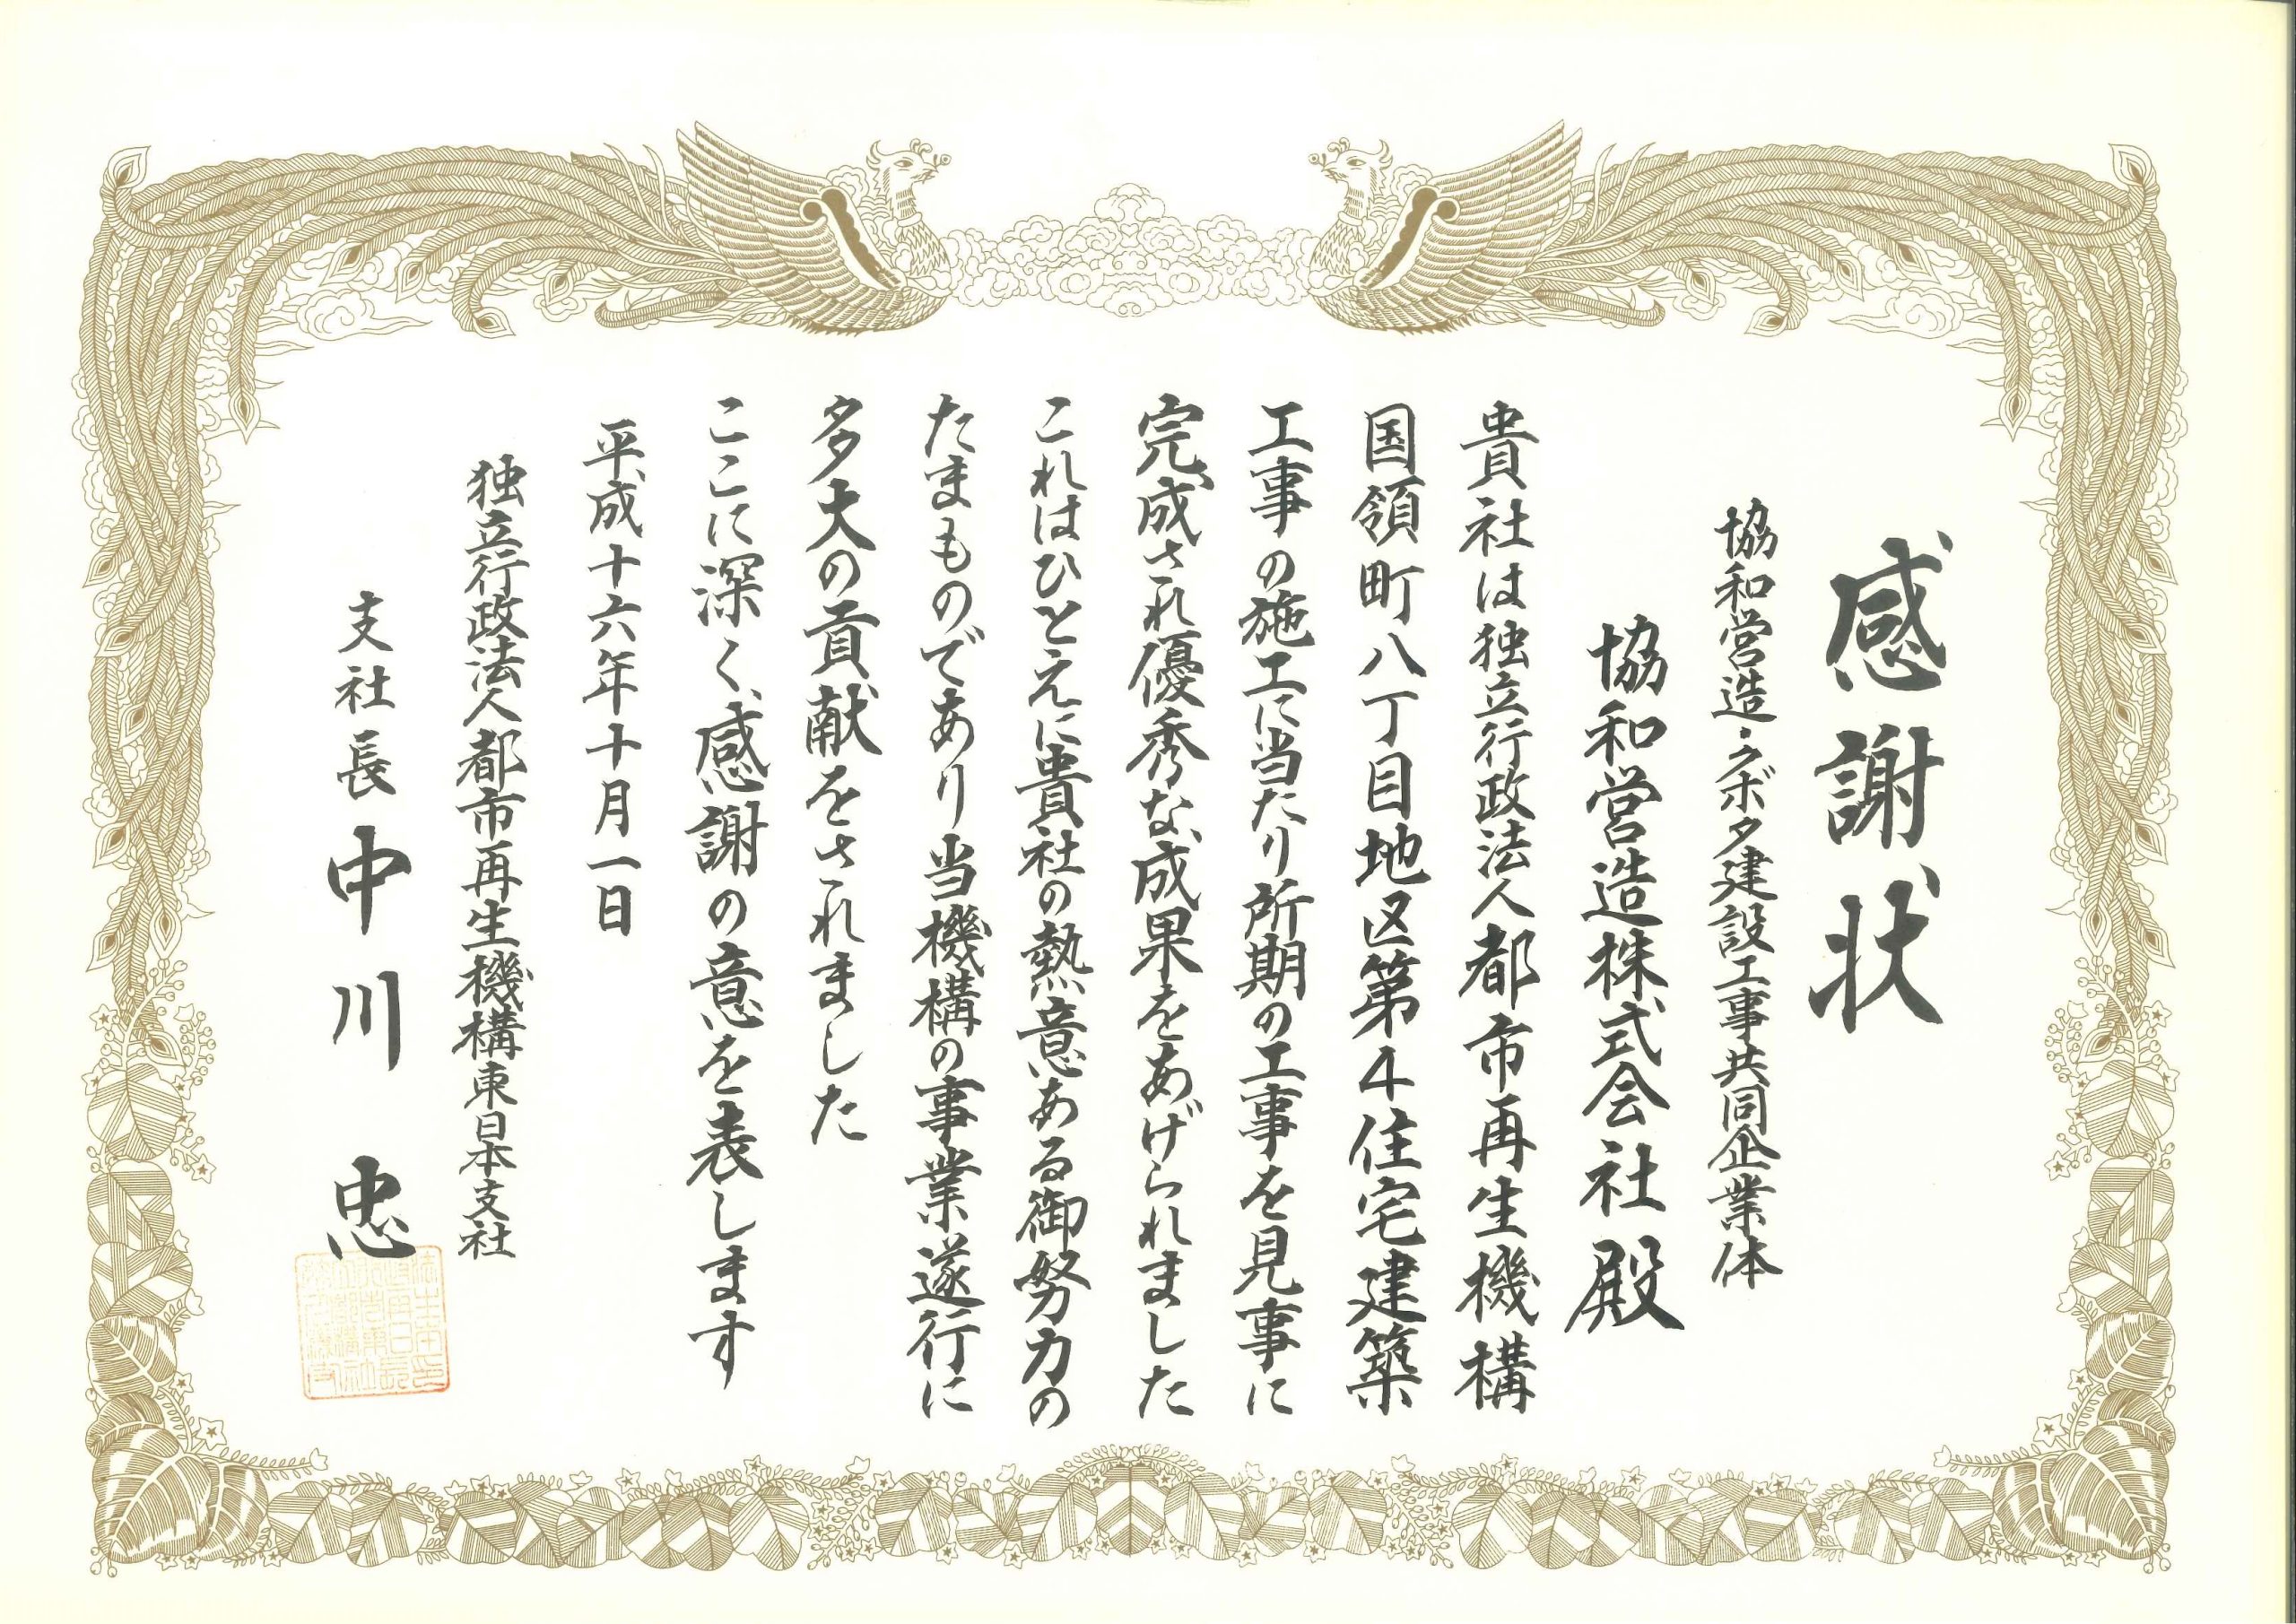 感謝状
協和営造・クボタ建設工事共同企業体
協和営造株式会社殿
貴社は独立行政法人都市再生機構
国領町八丁目地区第4住宅建築
工事の施工に当たり所期の工事を見事に
完成され優秀な成果をあげられました
これはひとえに貴社の熱意ある御努力の
たまものであり当機構の事業遂行に
多大の貢献をされました
ここに深く感謝の意を表します
平成十六年十月一日
独立行政法人都市再生機構東日本支社
支社長 中川 忠